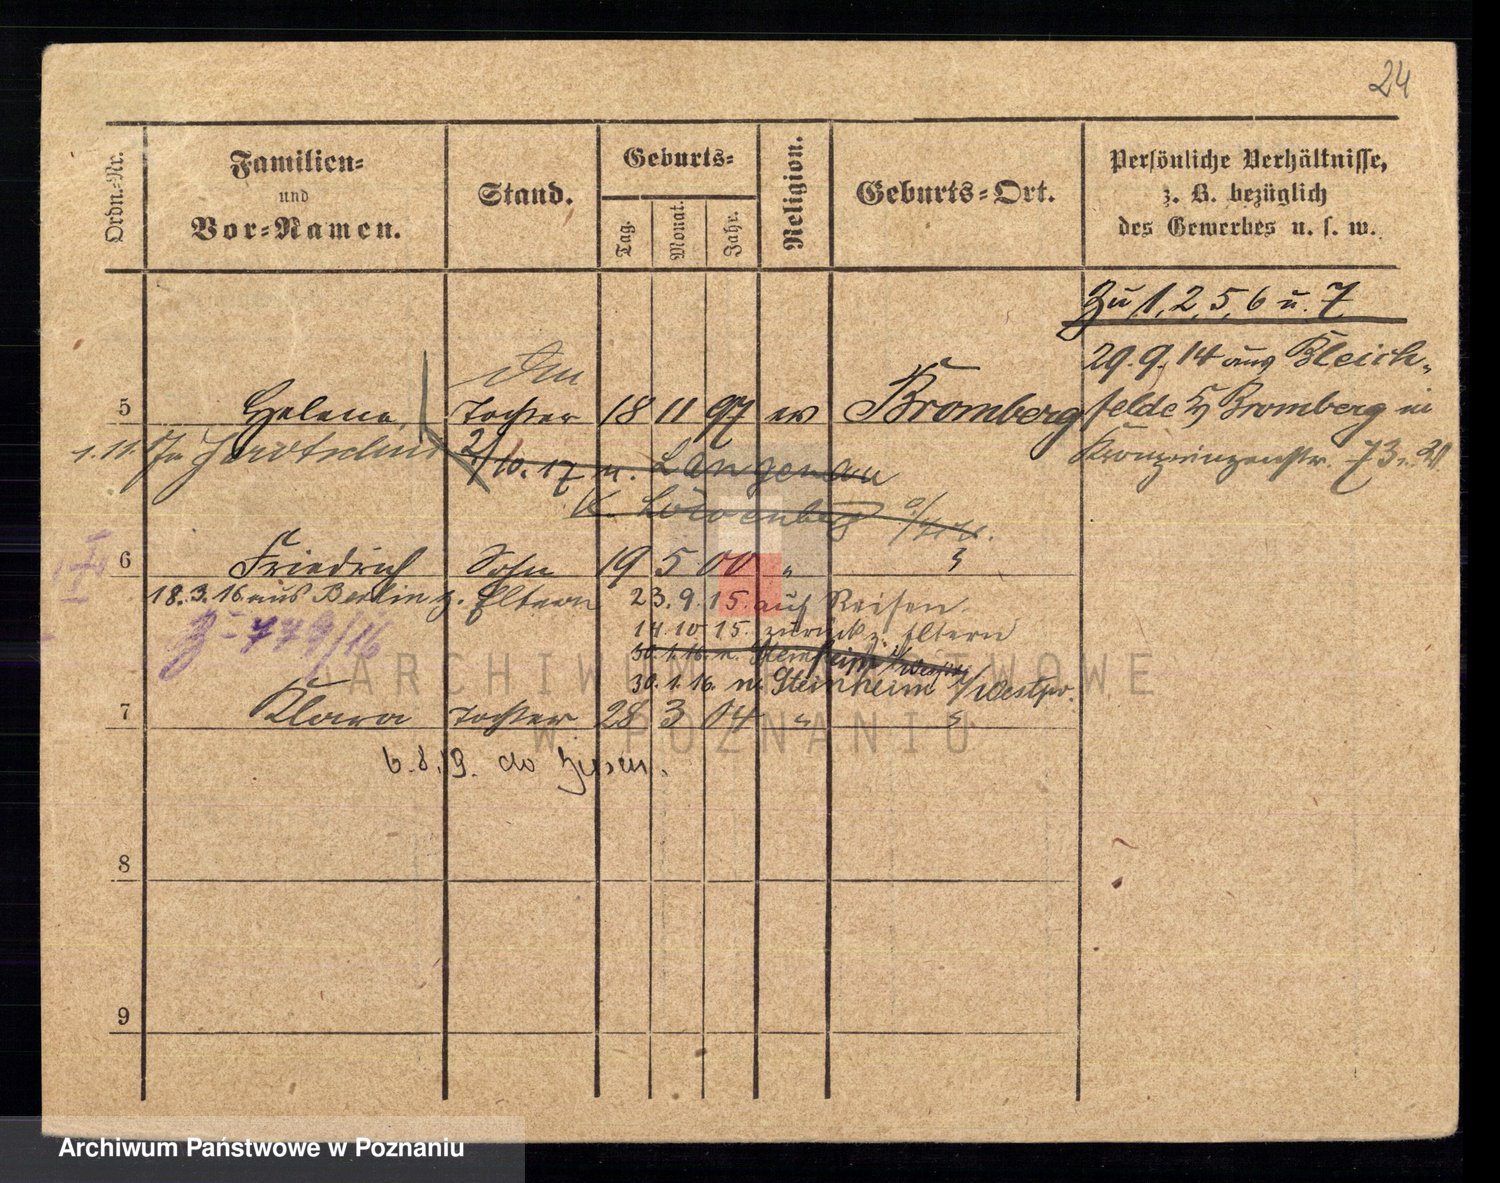 24
Ordn.-Nr.
Familien-
und
Vor-Namen.
Stand.
Geburts-
Tag.
Monat.
Jahr.
Religion.
Geburts-Ort.
Persönliche Verhältnisse,
z. B. bezüglich
des Gewerbes u. s. w.
Zu 1, 2, 5, 6 u. 7
29.9.14 aus Bleich-
felde Bromberg in
Kronprinzenstr. 73
5 Helene, Tochter 18 11 97 ev Bromberg
1.11.
2/10.17 n. Langenau
K. Löwenberg
6 Friedrich Sohn 19 5 00 "
18.3.16 aus Berlin z. Eltern
23.9.15. auf Reisen
14.10 15. zurück z. Eltern
30.1.16. n.
30.1.16. n. Steinheim
Z: 779/16
7 Klara Tochter 28 3 04 "
6.8.19. do
8
9
ARCHIWUM PAŃSTWOWE
W POZNANIU
Archiwum Państwowe w Poznaniu